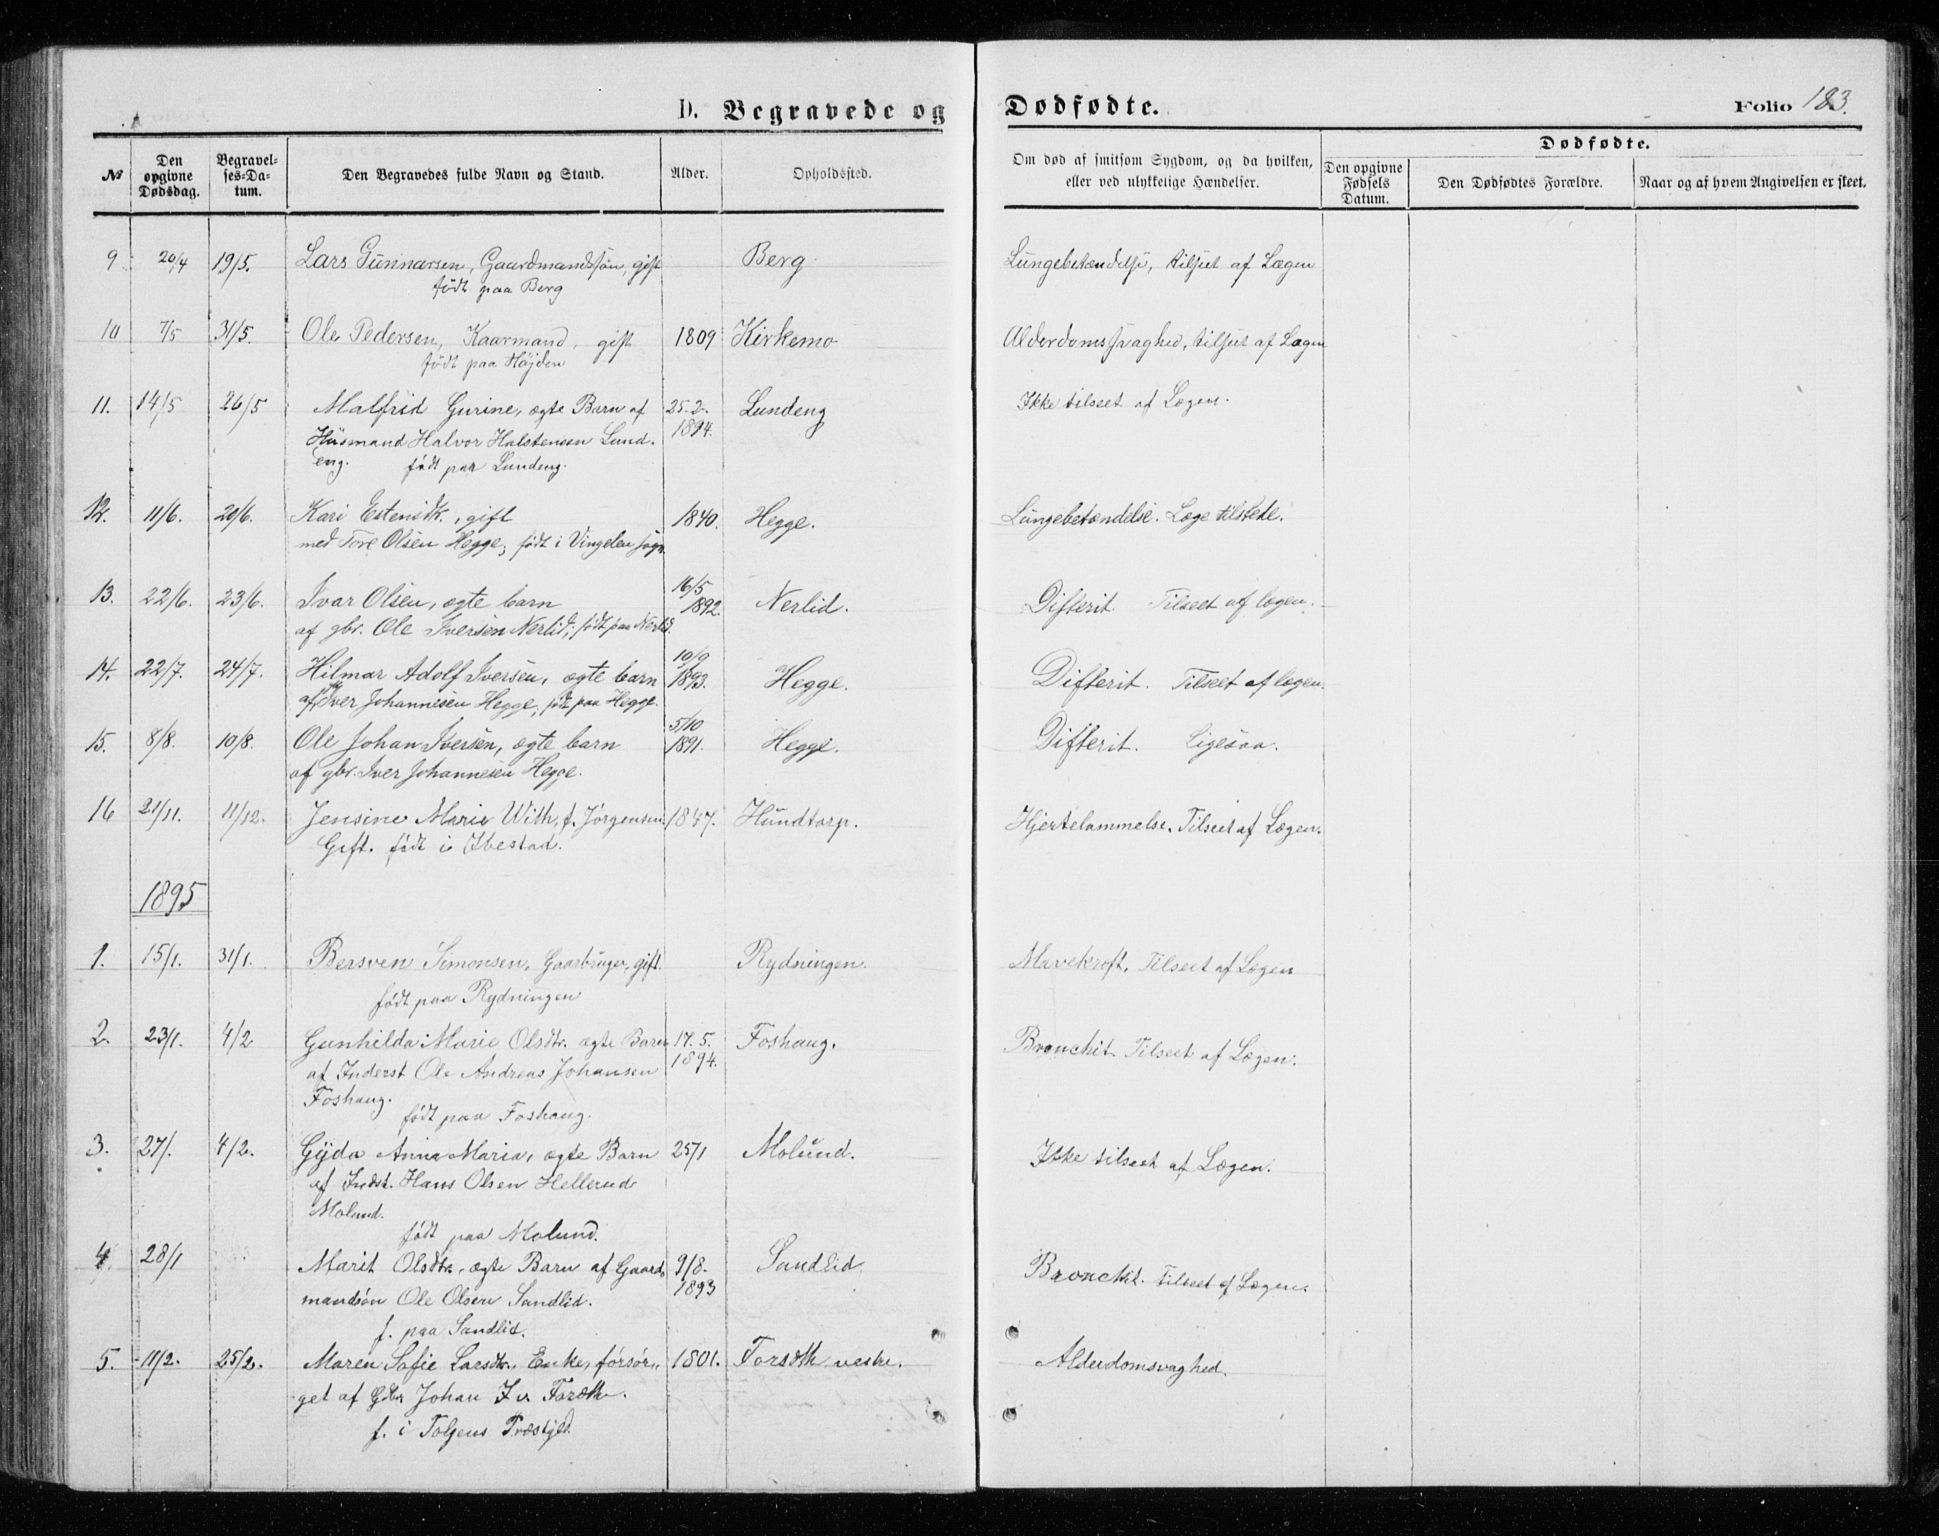 D. Begravede og Dødfødte.
Folio 183.
№ Den opgivne Dødsdag. Begravelses-Datum. Den Begravedes fulde Navn og Stand. Alder. Opholdssted. Om død af smitsom Sygdom, og da hvilken, eller ved ulykkelige Hændelser. Dødfødte. Den opgivne Fødsels Datum. Den Dødfødtes Forældre. Naar og af hvem Angivelsen er skeet.
9 20/4 19/5. Lars Gunnarsen, Gaardmandssøn, gift Berg Lungebetændelse, tilseet af Lægen
født paa Berg
10 7/5 31/5. Ole Pedersen, Kaarmand, gift 1809 Kirkemo Alderdomssvaghed, tilseet af Lægen
født paa Højden
11. 14/5 26/5 Malfrid Gurine, ægte Barn af 25.2. 1894. Lundeng Ikke tilseet af Lægen.
Husmand Halvor Halstensen Lund
eng. født paa Lundeng.
12. 11/6. 20/6. Kari Estensdtr., gift 1840. Hegge. Lungebetændelse. Læge tilstede.
med Tore Olsen Hegge; født i Vingelen sogn
13. 22/6. 23/6. Ivar Olsen, ægte barn 16/5 1892. Nerlid. Difterit. Tilseet af lægen.
af gbr. Ole Iversen Nerlid; født paa Nerlid.
14. 22/7. 24/7. Hilmar Adolf Iversen, ægte barn 10/9 1893. Hegge. Difterit. Tilseet af lægen.
af Iver Johannesen Hegge, født paa Hegge.
15. 8/8. 10/8. Ole Johan Iversen, ægte barn 5/10 1891. Hegge. Difterit. Ligesaa.
af gbr. Iver Johannesen Hegge.
16 21/11. 11/12. Jensine Marie With, f. Jörgensen. 1847. Hundtorp. Hjertelammelse. Tilseet af Lægen.
Gift. født i Ibestad.
1895
1. 15/1. 31/1. Bersven Simonsen, Gaarbruger, gift. Rydningen. Mavekræft. Tilseet af Lægen
født paa Rydningen
2. 23/1. 4/2 Gunhilda Marie Olsdtr. ægte Barn 17.5. 1894. Foshaug. Bronchit. Tilseet af Lægen.
af Inderst Ole Andreas Johansen
Foshaug.
født paa Foshaug.
3. 27/. 4/2. Gyda Anna Maria, ægte Barn 25/1 Molund. Ikke tilseet af Lægen.
af Indst. Hans Olsen Hellerud
Molund.
født paa Molund.
4. 28/1 Marit Olsdtr. ægte Barn af Gaard- 9/8. 1893 Sandlid Bronchit. Tilseet af Lægen.
mandsön Ole Olsen Sandlid.
f. paa Sandlid.
5. 11/2. 25/2. Maren Sofie Larsdtr., Enke, försör- 1801. Forsöth vestre. Alderdomsvaghed.
get af Gbr. Johan
f. i Tolgens Præstgld.